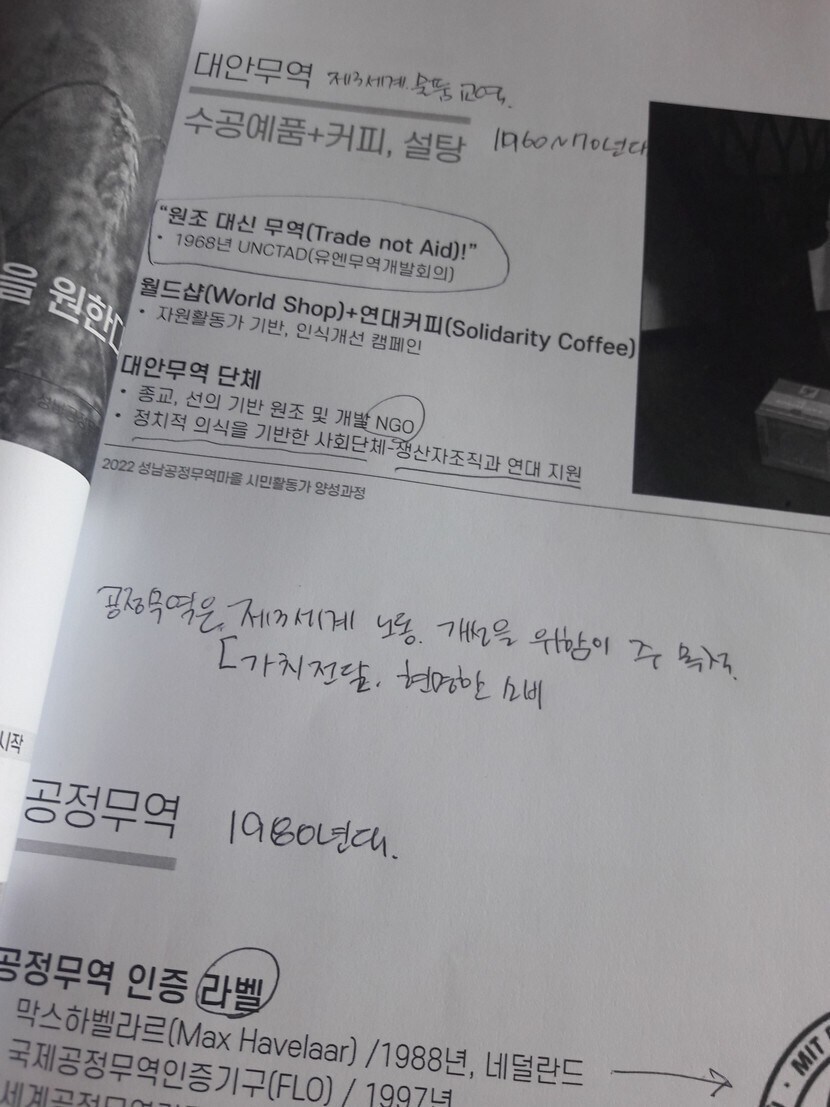 대안무역 제3세계. 물품 교역.
수공예품+커피, 설탕 1960~70년대
"원조 대신 무역(Trade not Aid)!"
• 1968년 UNCTAD(유엔무역개발회의)
을 원한다
월드샵(World Shop)+연대커피(Solidarity Coffee)
• 자원활동가 기반, 인식개선 캠페인
대안무역 단체
• 종교, 선의 기반 원조 및 개발 NGO
• 정치적 의식을 기반한 사회단체-생산자조직과 연대 지원
2022 성남공정무역마을 시민활동가 양성과정
공정무역은, 제3세계 노동. 개선을 위함이 주 목적.
[가치전달. 현명한 소비
시작
공정무역 1980년대.
공정무역 인증 라벨
막스하벨라르(Max Havelaar) /1988년, 네덜란드
국제공정무역인증기구(FLO) / 1997년
MIT